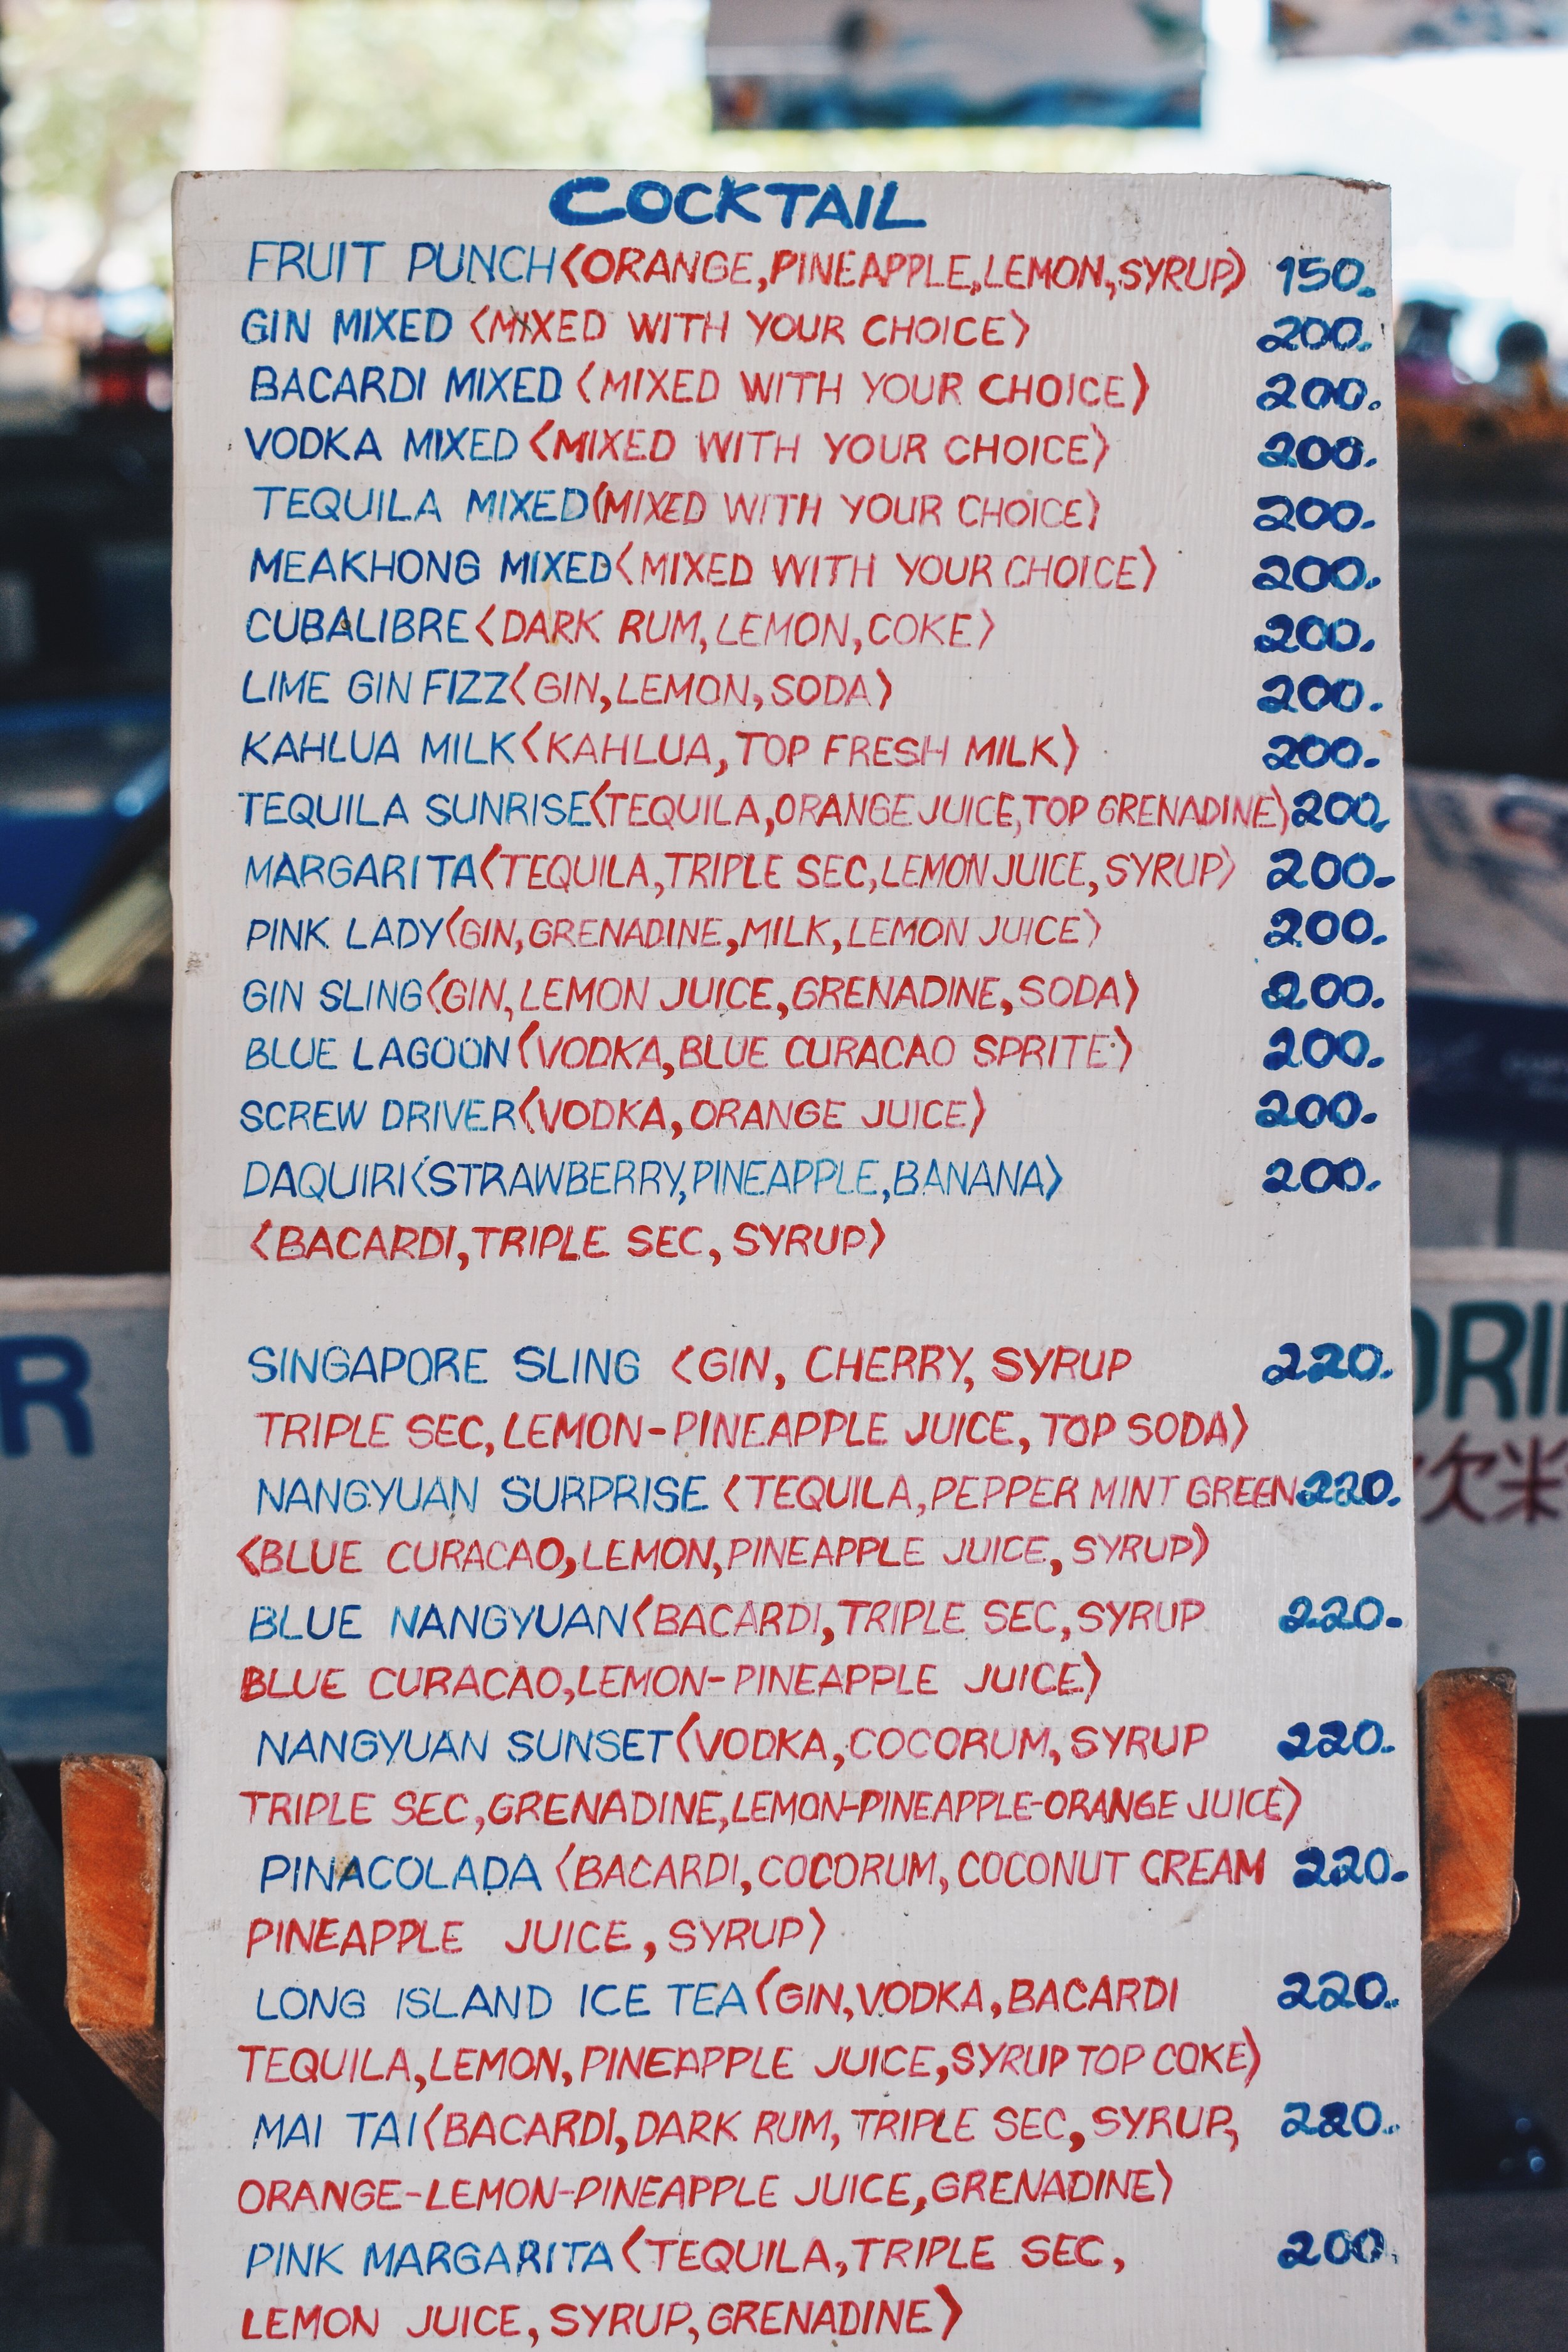 COCKTAIL
FRUIT PUNCH<ORANGE,PINEAPPLE,LEMON,SYRUP> 150.
GIN MIXED <MIXED WITH YOUR CHOICE> 200.
BACARDI MIXED <MIXED WITH YOUR CHOICE> 200.
VODKA MIXED <MIXED WITH YOUR CHOICE> 200.
TEQUILA MIXED(MIXED WITH YOUR CHOICE) 200.
MEAKHONG MIXED<MIXED WITH YOUR CHOICE> 200.
CUBALIBRE<DARK RUM,LEMON,COKE> 200.
LIME GIN FIZZ<GIN,LEMON,SODA> 200.
KAHLUA MILK<KAHLUA,TOP FRESH MILK> 200.
TEQUILA SUNRISE<TEQUILA,ORANGE JUICE,TOP GRENADINE> 200.
MARGARITA<TEQUILA,TRIPLE SEC,LEMON JUICE,SYRUP> 200.
PINK LADY<GIN,GRENADINE,MILK,LEMON JUICE> 200.
GIN SLING<GIN,LEMON JUICE,GRENADINE,SODA> 200.
BLUE LAGOON<VODKA,BLUE CURACAO SPRITE> 200.
SCREW DRIVER<VODKA,ORANGE JUICE> 200.
DAQUIRI<STRAWBERRY,PINEAPPLE,BANANA> 200.
<BACARDI,TRIPLE SEC,SYRUP>
SINGAPORE SLING <GIN, CHERRY, SYRUP 220.
TRIPLE SEC,LEMON-PINEAPPLE JUICE,TOP SODA>
NANGYUAN SURPRISE <TEQUILA,PEPPER MINT GREEN 220.
<BLUE CURACAO,LEMON,PINEAPPLE JUICE,SYRUP>
BLUE NANGYUAN<BACARDI,TRIPLE SEC,SYRUP 220.
BLUE CURACAO,LEMON-PINEAPPLE JUICE>
NANGYUAN SUNSET<VODKA,COCORUM,SYRUP 220.
TRIPLE SEC,GRENADINE,LEMON-PINEAPPLE-ORANGE JUICE>
PINACOLADA <BACARDI,COCORUM,COCONUT CREAM 220.
PINEAPPLE JUICE,SYRUP>
LONG ISLAND ICE TEA<GIN,VODKA,BACARDI 220.
TEQUILA,LEMON,PINEAPPLE JUICE,SYRUP TOP COKE>
MAI TAI<BACARDI,DARK RUM,TRIPLE SEC,SYRUP, 220.
ORANGE-LEMON-PINEAPPLE JUICE,GRENADINE>
PINK MARGARITA<TEQUILA,TRIPLE SEC, 200.
LEMON JUICE,SYRUP,GRENADINE>